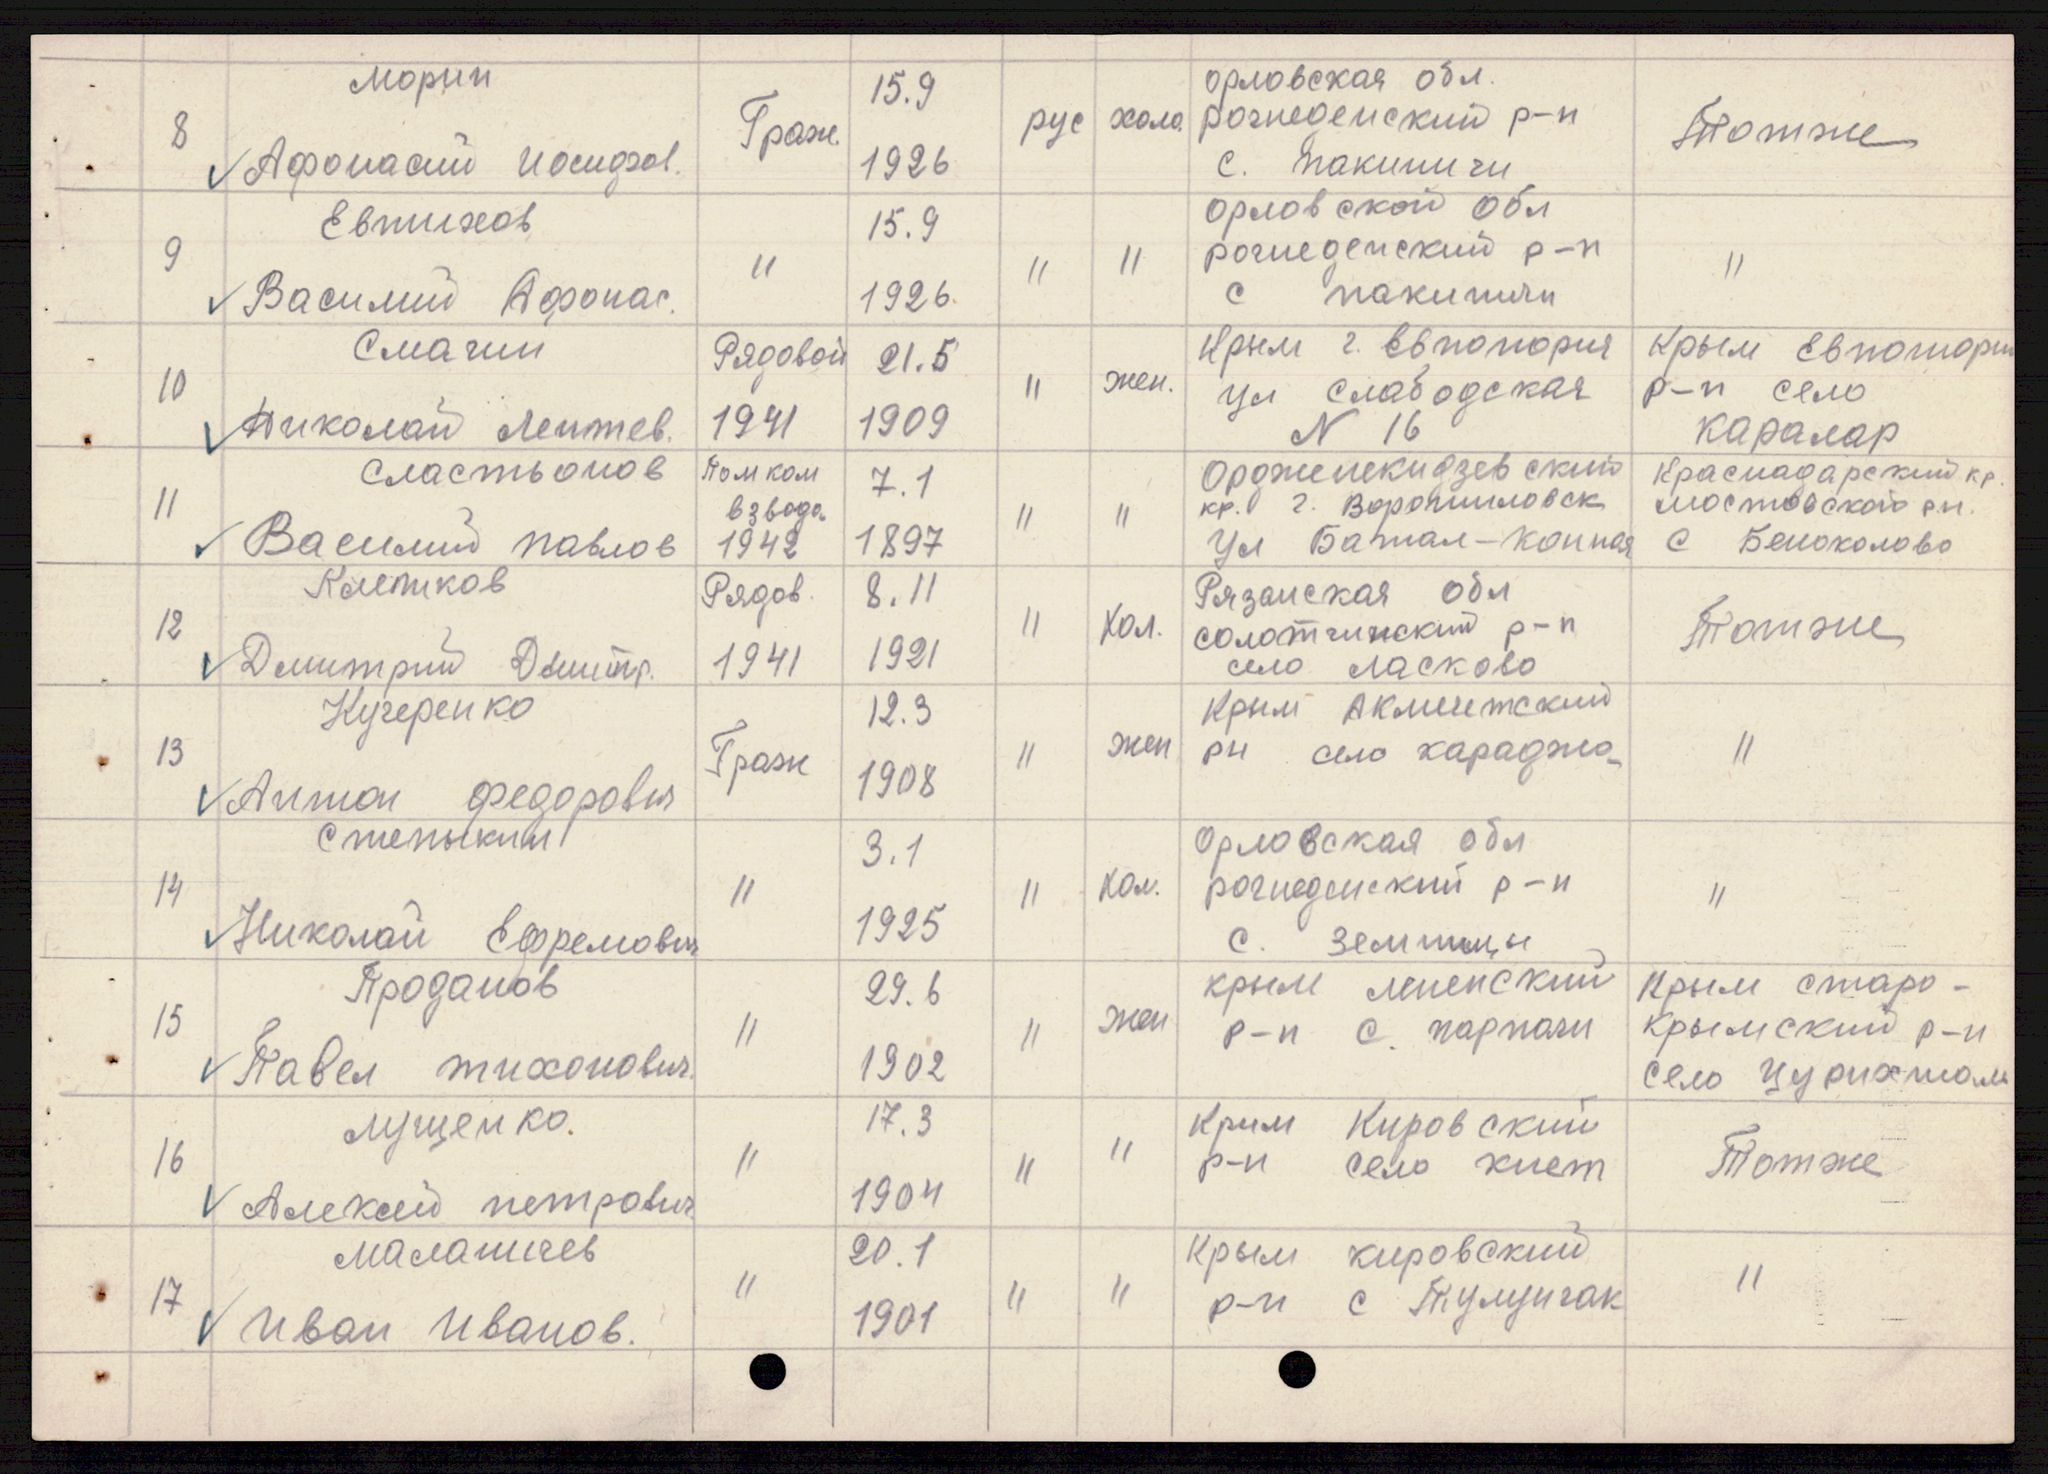 8 Морин Граж. 15.9 рус холо. орловская обл.
Афонасий Иосифов. 1926 рогнеденский р-н Тотже
с. Пакиничи
9 Евтихов " 15.9 " " орловской обл
Василий Афонас. 1926 рогнеденский р-н "
с пакиничи
10 Смагин Рядовой 21.5 " жен. Крым г. Евпатория Крым Евпатории
Николай Лентев. 1941 1909 ул Слабодская р-н село
N 16 каралар
11 Сластьонов Помком 7.1 " " Ордженекидзевский Краснадарский кр.
взвода кр. г. Ворошиловск мостовской рн.
Василий павлов 1942 1897 Ул Батал-конная с Беноколово
12 Клетиков Рядов. 8.11 " Хол. Рязанская обл Тотже
Дмитрий Дмитр. 1941 1921 солотчинский р-н
село ласково
13 Кучеренко Граж 12.3 " жен Крым Акмечетский "
Антон федорович 1908 рн село караджа
14 Степыкин " 3.1 " Хол. Орловская обл "
Николай Ефремович 1925 рогнеденский р-н
с. земтицы
15 Проданов " 29.6 " Жен крым лененский Крым старо-
Павел тихонович. 1902 р-н с. парпачи крымский р-н
село Цурихталь
16 лущенко. " 17.3 " " Крим Кировский Тотже
Алексей петрович 1904 р-н село киет
17 малашичев " 20.1 " " Крым кировский "
Иван Иванов. 1901 р-н с Тулунчак